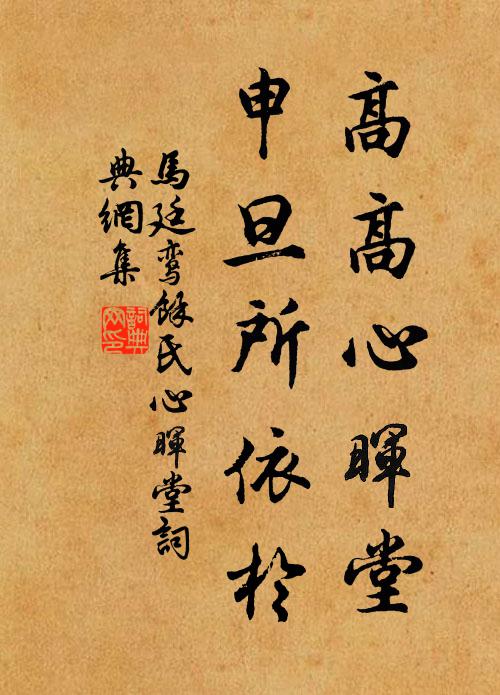 高高心暉堂
申旦所依於
馬廷鸾餘氏心暉堂詞
典網集
詞典網印